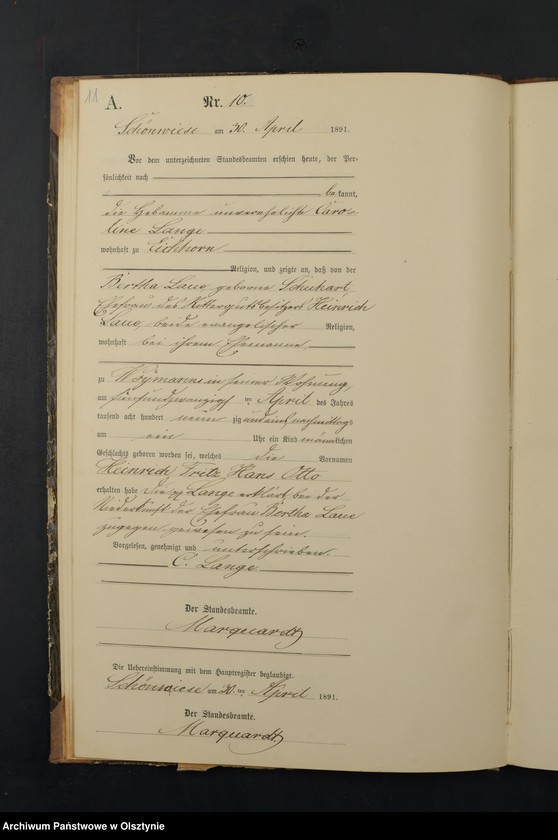 11
A.
Nr. 10.
Schönwiese am 30. April 1891.
Vor dem unterzeichneten Standesbeamten erschien heute, der Per-
sönlichkeit nach
be kannt,
die Hebamme unverehelichte Caro-
line Lange
wohnhaft zu Eichhorn
Religion, und zeigte an, daß von der
Bertha Laue geborne
Ehefrau des Rittergutsbesitzers Heinrich
Laue, beide evangelischer Religion,
wohnhaft bei ihrem Ehemanne
zu in seiner Wohnung,
am fünfundzwanzigsten April des Jahres
tausend acht hundert neun zig und eins nachmittags
um ein Uhr ein Kind männlichen
Geschlechts geboren worden sei, welches die Vornamen
Heinrich Fritz Hans Otto
erhalten habe Die Lange erklärt bei der
Niederkunft der Ehefrau Bertha Laue
zugegen gewesen zu sein.
Vorgelesen, genehmigt und unterschrieben.
C. Lange
Der Standesbeamte.
Marquardt
Die Uebereinstimmung mit dem Hauptregister beglaubigt.
Schönwiese am 30. ten April 1891.
Der Standesbeamte.
Marquardt
Archiwum Państwowe w Olsztynie